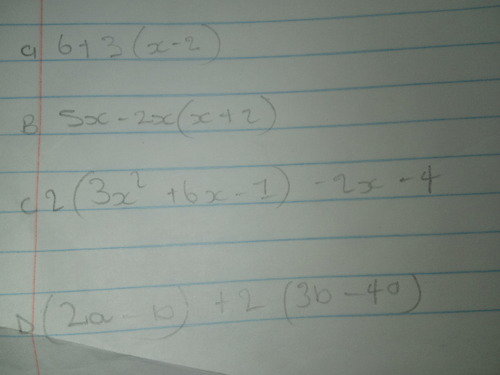 a 6+3(x-2)
B 5x-2x(x+2)
C 2(3x² +6x-1) -2x -4
D (2a-b) +2(3b-4a)